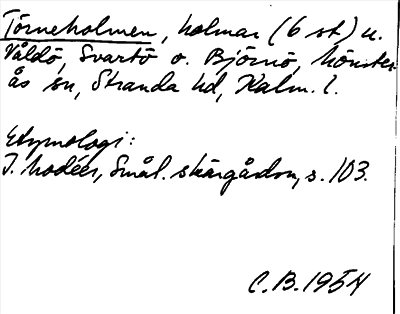 Törneholmen, holmar (6 st) u.
Våldö, Svartö o. Björnö, Mönster-
ås sn, Stranda hd, Kalm. l.
Etymologi:
J. Modéer, Smål. skärgårdsn, s. 103.
C.B. 1954